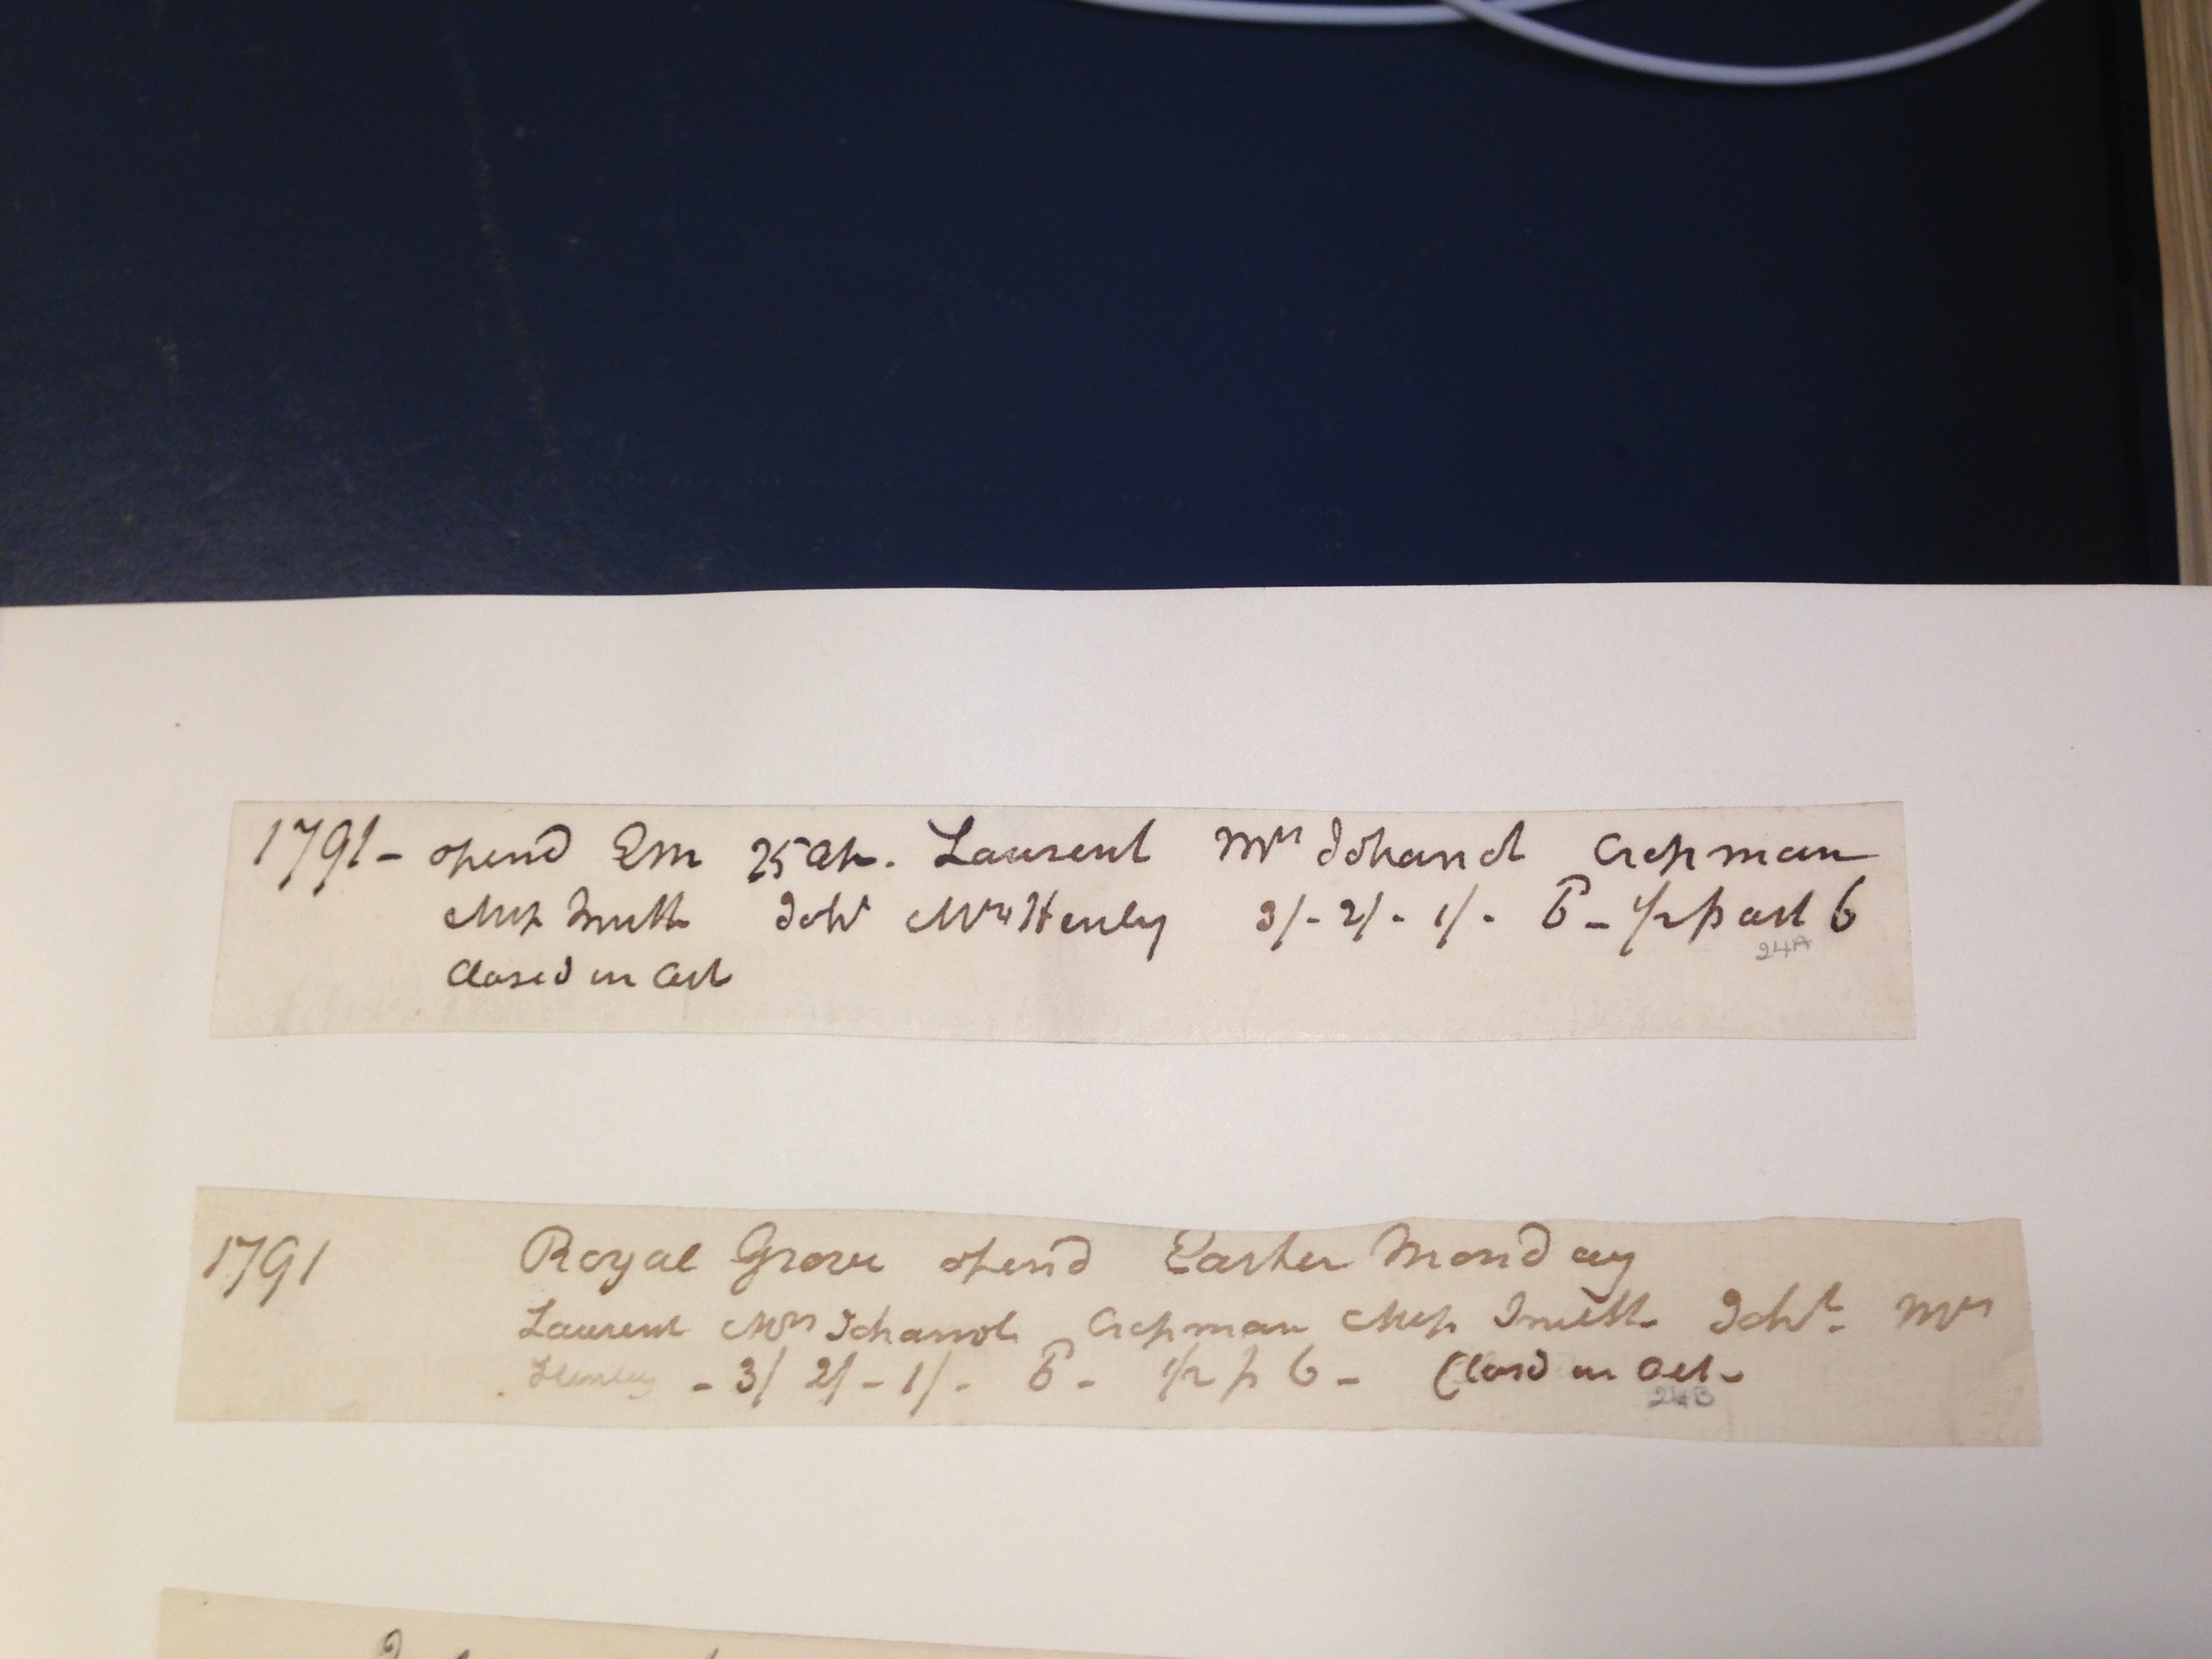 1791 - opend Em 25 Ap. Laurent Mrs Johannot Crosman
Miss Smith Joht Mrs Henley 3/- 2/- 1/- 6 - 1/2 past 6
24A
Closed in Oct
1791 Royal Grove opend Easter Monday
Laurent Mrs Johannot Crosman Miss Smith Joht. Mrs
Henley - 3/ 2/- 1/- 6 - 1/2 p 6 - Closd in Oct -
24B